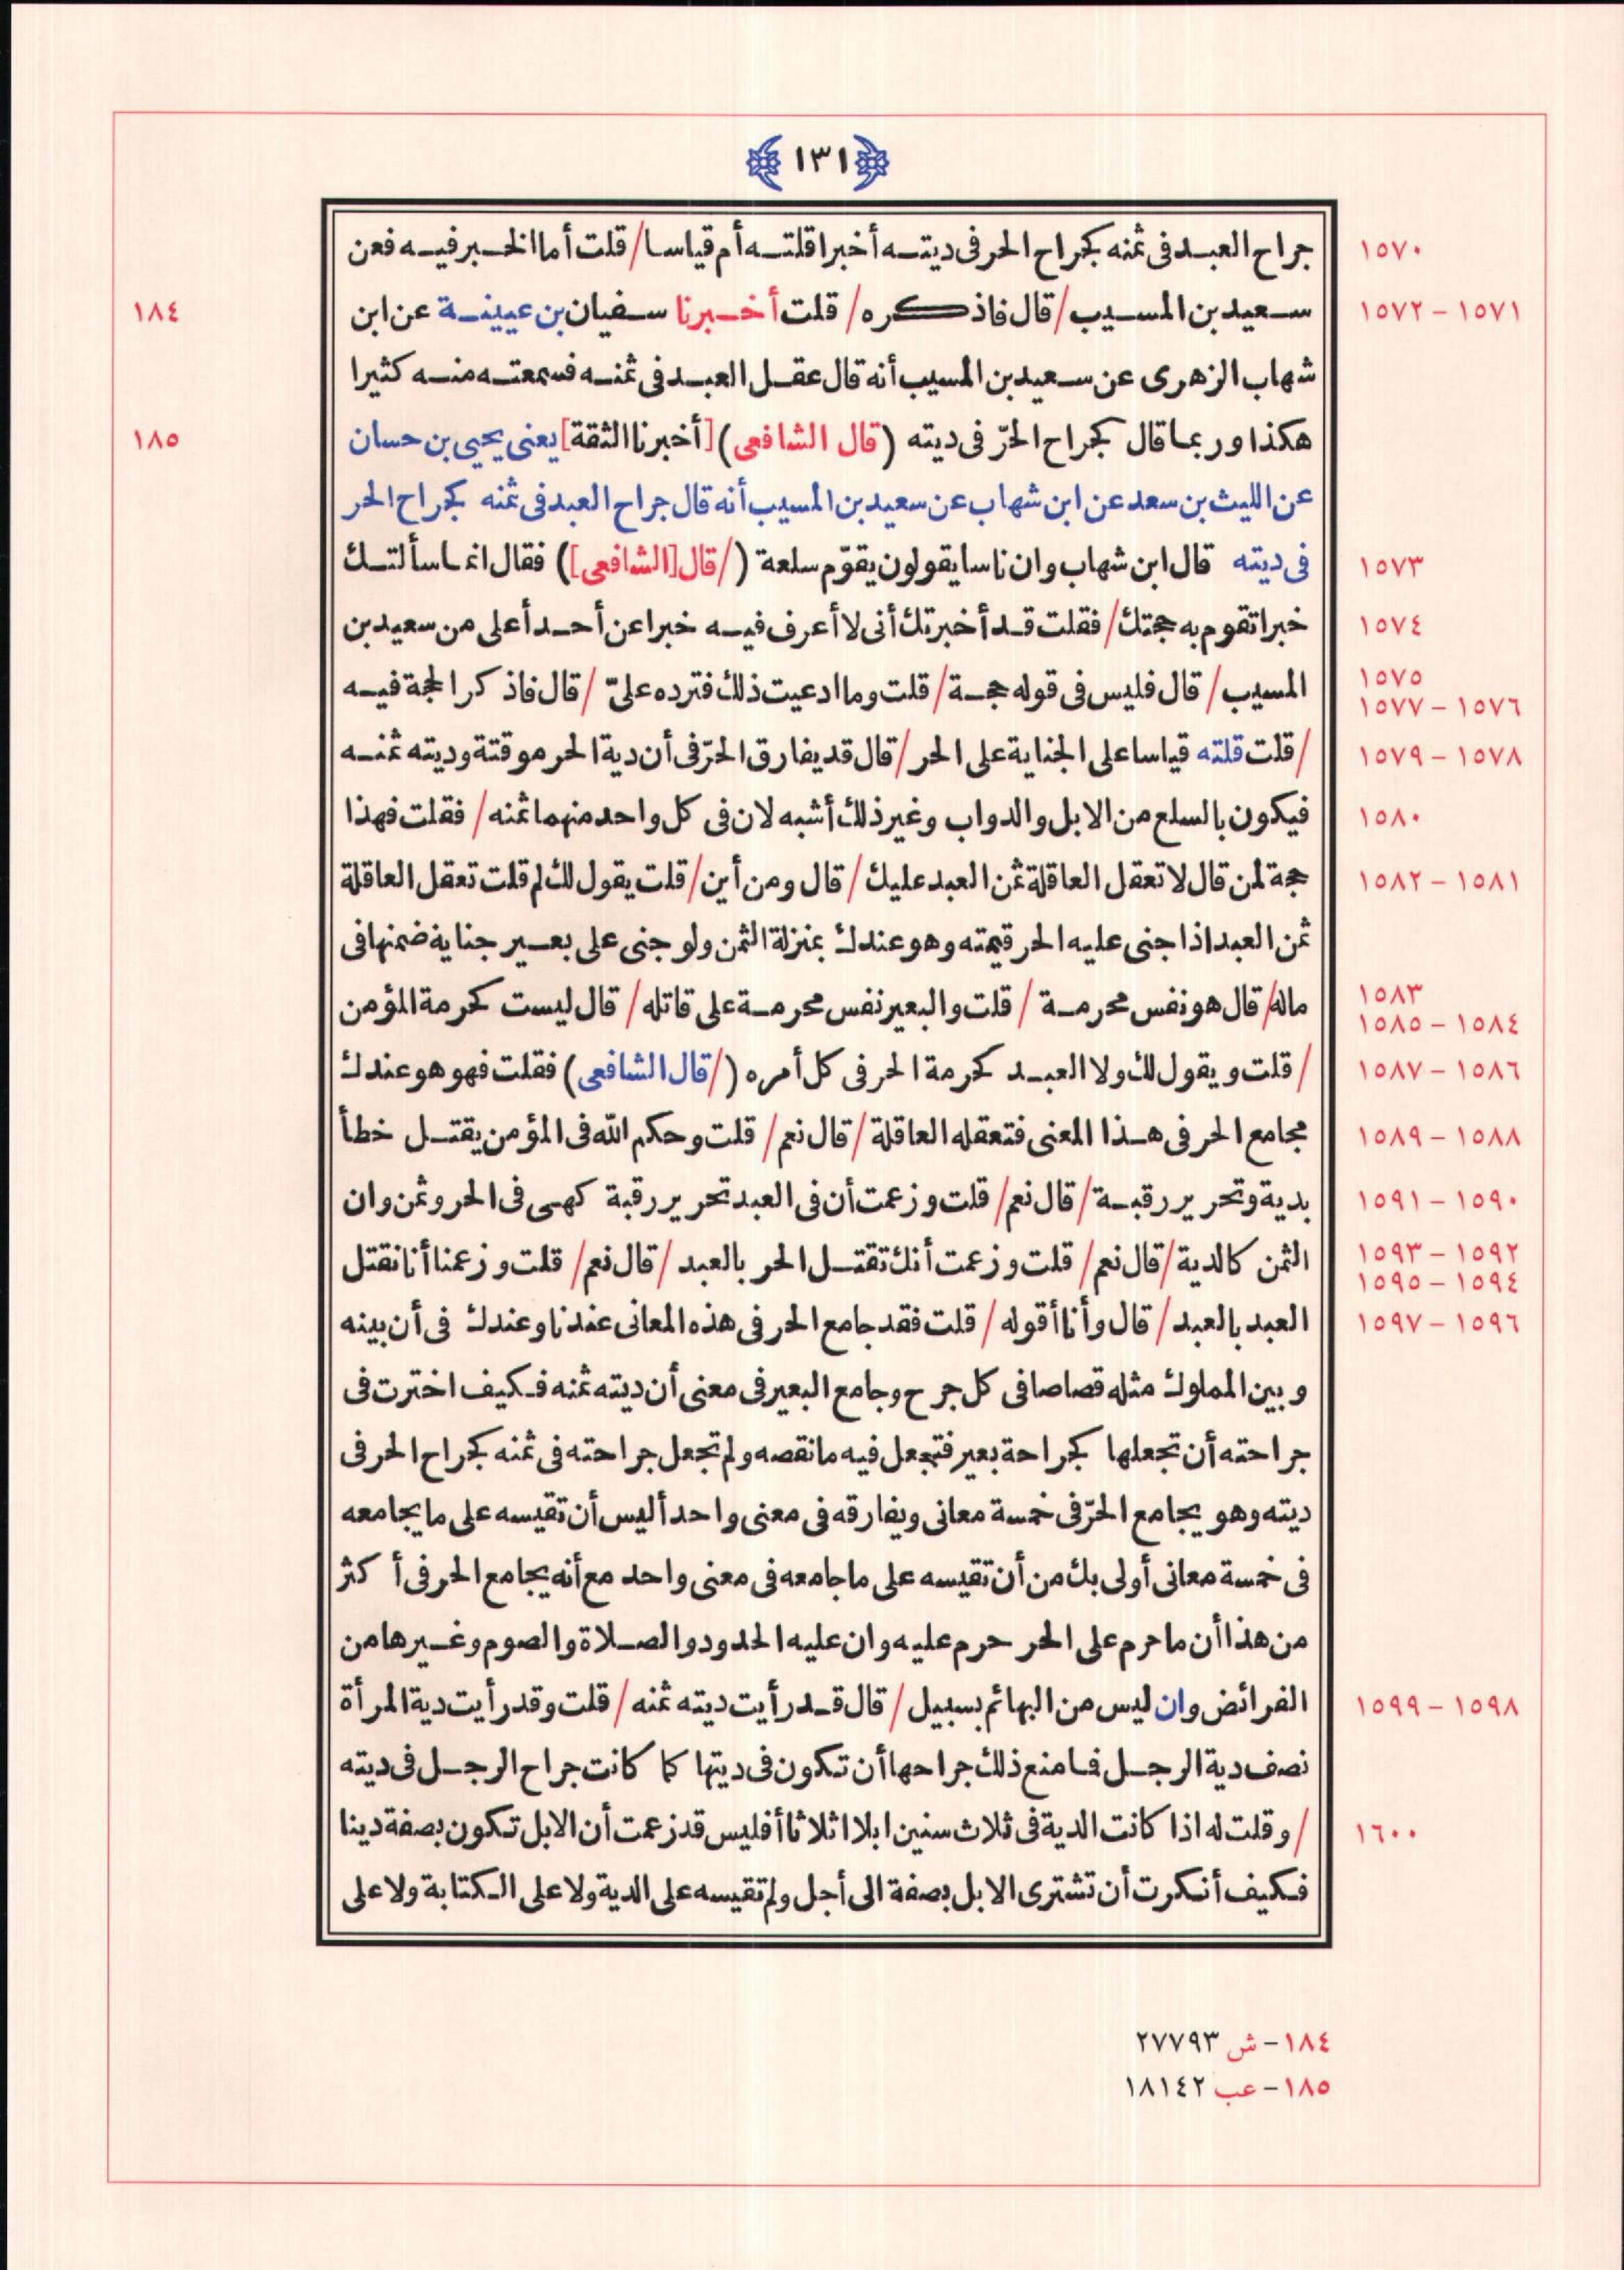 ١٣١
١٥٧٠ جراح العبد فى ثمنه كجراح الحر فى ديته أخبرا قلته أم قياسا/ قلت أما الخبر فيه فعن
١٥٧١ – ١٥٧٢ سعيد بن المسيب/ قال فاذكره/ قلت أخبرنا سفيان بن عيينة عن ابن ١٨٤
شهاب الزهرى عن سعيد بن المسيب أنه قال عقل العبد فى ثمنه فسمعته منه كثيرا
هكذا وربما قال كجراح الحرّ فى ديته (قال الشافعى) [أخبرنا الثقة] يعنى يحيى بن حسان ١٨٥
عن الليث بن سعد عن ابن شهاب عن سعيد بن المسيب أنه قال جراح العبد فى ثمنه كجراح الحر
١٥٧٣ فى ديته قال ابن شهاب وان ناسا يقولون يقوّم سلعة (/قال [الشافعى]) فقال انما سألتك
١٥٧٤ خبرا تقوم به حجتك/ فقلت قد أخبرتك أنى لا أعرف فيه خبرا عن أحد أعلى من سعيد بن
١٥٧٥ ١٥٧٦ – ١٥٧٧ المسيب/ قال فليس فى قوله حجة/ قلت وما ادعيت ذلك فترده علىّ/ قال فاذكر الحجة فيه
١٥٧٨ – ١٥٧٩ /قلت قلته قياسا على الجناية على الحر/ قال قد يفارق الحرّ فى أن دية الحر موقتة وديته ثمنه
١٥٨٠ فيكون بالسلع من الابل والدواب وغير ذلك أشبه لان فى كل واحد منهما ثمنه/ فقلت فهذا
١٥٨١ – ١٥٨٢ حجة لمن قال لا تعقل العاقلة ثمن العبد عليك/ قال ومن أين/ قلت يقول لك لم قلت تعقل العاقلة
ثمن العبد اذا جنى عليه الحر قيمته وهو عندك بمنزلة الثمن ولو جنى على بعير جناية ضمنها فى
١٥٨٣ ١٥٨٤ – ١٥٨٥ ماله/ قال هو نفس محرمة/ قلت والبعير نفس محرمة على قاتله/ قال ليست كحرمة المؤمن
١٥٨٦ – ١٥٨٧ /قلت ويقول لك ولا العبد كحرمة الحر فى كل أمره (/قال الشافعى) فقلت فهو هو عندك
١٥٨٨ – ١٥٨٩ مجامع الحر فى هذا المعنى فتعقله العاقلة/ قال نعم/ قلت وحكم الله فى المؤمن يقتل خطأ
١٥٩٠ – ١٥٩١ بدية وتحرير رقبة/ قال نعم/ قلت وزعمت أن فى العبد تحرير رقبة كهى فى الحر وثمن وان
١٥٩٢ – ١٥٩٣ ١٥٩٤ – ١٥٩٥ الثمن كالدية/ قال نعم/ قلت وزعمت أنك تقتل الحر بالعبد/ قال نعم/ قلت وزعمنا أنا نقتل
١٥٩٦ – ١٥٩٧ العبد بالعبد/ قال وأنا أقوله/ قلت فقد جامع الحر فى هذه المعانى عندنا وعندك فى أن بينه
وبين المملوك مثله قصاصا فى كل جرح وجامع البعير فى معنى أن ديته ثمنه فكيف اخترت فى
جراحته أن تجعلها كجراحة بعير فتجعل فيه ما نقصه ولم تجعل جراحته فى ثمنه كجراح الحر فى
ديته وهو يجامع الحرّ فى خمسة معانى ويفارقه فى معنى واحد أليس أن تقيسه على ما يجامعه
فى خمسة معانى أولى بك من أن تقيسه على ما جامعه فى معنى واحد مع أنه يجامع الحر فى أكثر
من هذا أن ما حرم على الحر حرم عليه وان عليه الحدود والصلاة والصوم وغيرها من
١٥٩٨ – ١٥٩٩ الفرائض وان ليس من البهائم بسبيل/ قال قد رأيت ديته ثمنه/ قلت وقد رأيت دية المرأة
نصف دية الرجل فما منع ذلك جراحها أن تكون فى ديتها كما كانت جراح الرجل فى ديته
١٦٠٠ /وقلت له اذا كانت الدية فى ثلاث سنين ابلا اثلاثا أفليس قد زعمت أن الابل تكون بصفة دينا
فكيف أنكرت أن تشترى الابل بصفة الى أجل ولم تقيسه على الدية ولا على الكتابة ولا على
١٨٤– ش ٢٧٧٩٣
١٨٥– عب ١٨١٤٢